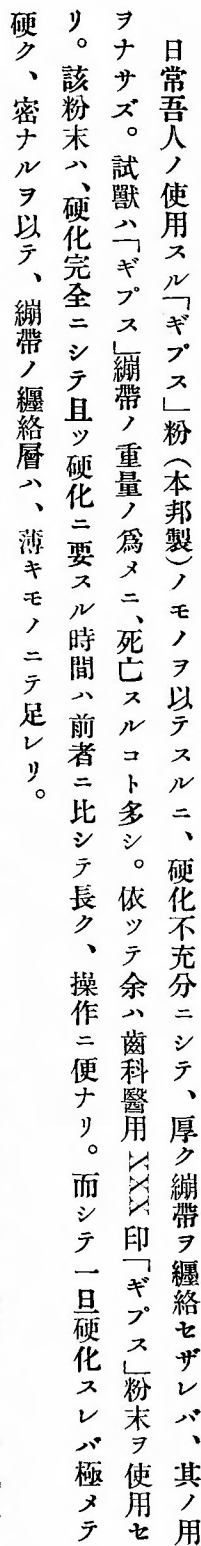 日常吾人ノ使用スル「ギプス」粉(本邦製)ノモノヲ以テスルニ、硬化不充分ニシテ、厚ク繃帶ヲ纒絡セザレバ、其ノ用
ヲナサズ。試獸ハ「ギプス」繃帶ノ重量ノ爲メニ、死亡スルコト多シ。依ツテ余ハ齒科醫用XXX印「ギプス」粉末ヲ使用セ
リ。該粉末ハ、硬化完全ニシテ且ツ硬化ニ要スル時間ハ前者ニ比シテ長ク、操作ニ便ナリ。而シテ一旦硬化スレバ極メテ
硬ク、密ナルヲ以テ、繃帶ノ纒絡層ハ、薄キモノニテ足レリ。